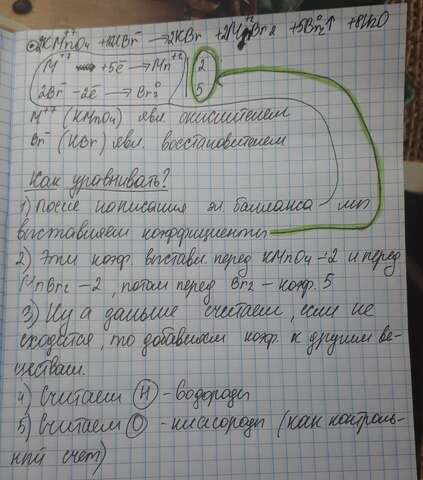 2KMnO₄ + 16HBr⁻ → 2KBr + 2Mn⁺²Br₂ + 5Br₂⁰↑ + 8H₂O
M⁺⁷ + 5ē → Mn⁺² | 2
2Br⁻ - 2ē → Br₂⁰ | 5
M⁺⁷ (KMnO₄) явл. окислителем
Br⁻ (HBr) явл. восстановителем
Как уравнивать?
1) После написания эл. балланса мы
выставляем коэффициенты
2) Эти коэф. выставл. перед KMnO₄ - 2 и перед
MnBr₂ - 2, потом перед Br₂ - коэф. 5
3) Ну а дальше считаем, если не
сходятся, то добавляем коэф. к другим ве-
ществам.
4) Считаем H - водороды
5) Считаем O - кислороды (как контроль-
ный счет)